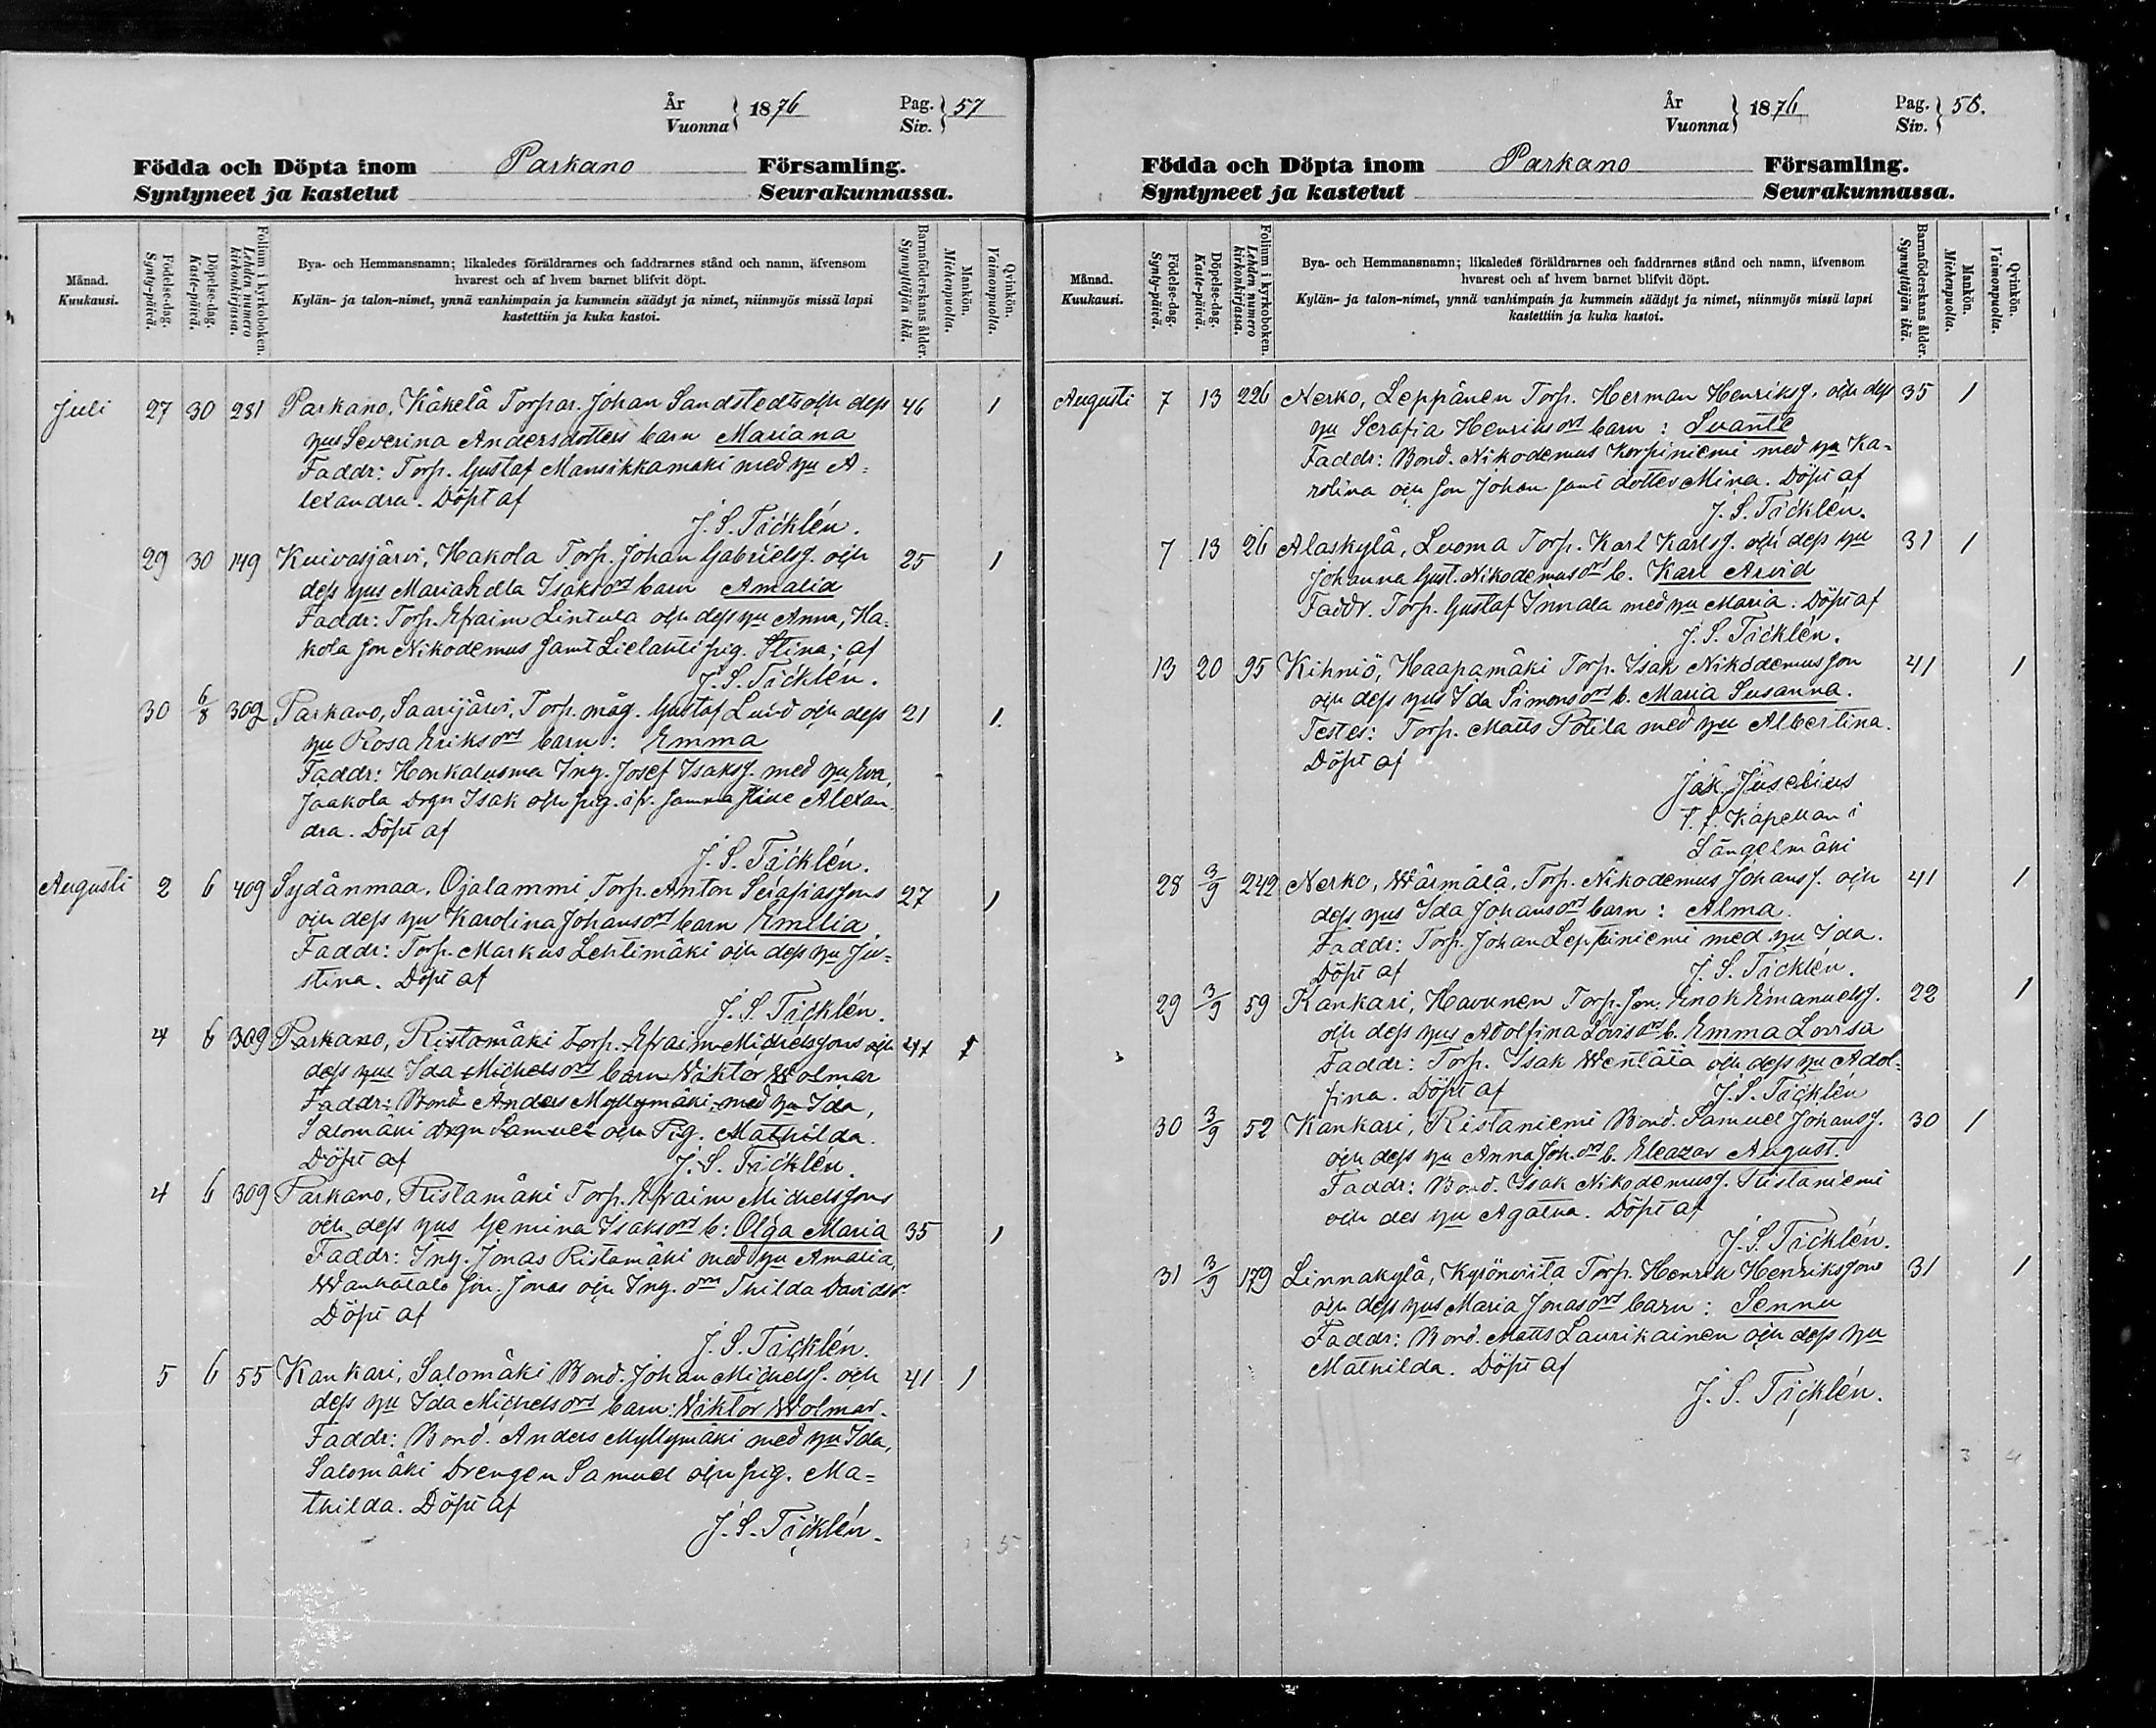 År
Vuonna } 1876
Pag.
Siv. } 57
Födda och Döpta inom Parkano Församling.
Syntyneet ja kastetut Seurakunnassa.
Månad.
Kuukausi.
Födelse-dag.
Synty-päivä.
Döpelse-dag.
Kaste-päivä.
Folium i kyrkoboken.
Lehden numero
kirkonkirjassa.
Bya- och Hemmansnamn; likaledes föräldrarnes och faddrarnes stånd och namn, äfvensom
hvarest och af hvem barnet blifvit döpt.
Kylän- ja talon-nimet, ynnä vanhimpain ja kummein säädyt ja nimet, niinmyös missä lapsi
kastettiin ja kuka kastoi.
Barnaföderskans ålder.
Synnyttäjän ikä.
Mankön.
Miehenpuolla.
Qvinkön.
Vaimonpuolla.
Juli 27 30 281 Parkano, Käkelä Torpar. Johan Sandstedts och dess 46 1
hus Severina Andersdotters barn Mariana
Faddr: Torp. Gustaf Mansikkamäki med hu A=
lexandra. Döpt af
J. S. Täcklén.
29 30 149 Kuivasjärvi, Hakola Torp. Johan Gabrielss. och 25 1
dess hus Maria Hedla Isaksdrs barn Amalia
Faddr: Torp. Efraim Lintula och dess hu Anna, Ha=
kola son Nikodemus samt Lielahti pig. Stina; af
J. S. Täcklén.
30 6/8 309 Parkano, Saarijärvi, Torp. måg. Gustaf Luid och dess 21 1.
hu Rosa Eriksdrs barn: Emma
Faddr: Honkaluoma Ing. Josef Isakss. med hu Eva,
Jaakola drgn Isak och pig. ifr. samma ställe Alexan
dra. Döpt af
J. S. Täcklén.
Augusti 2 6 409 Sydänmaa, Ojalammi Torp. Anton Serafiassons 27 1
och dess hu Karolina Johansdrs barn Emilia.
Faddr: Torp. Markus Lehtimäki och dess hu Ju=
stina. Döpt af
J. S. Täcklén.
4 6 309 Parkano, Ristamäki Torp. Efraim Michelssons och 41 1
dess hus Ida Michelsdrs barn Wiktor Wolmar
Faddr: Bond Anders Myllymäki med hu Ida,
Salomäki drgn Samuel och Pig. Mathilda.
Döpt af J. S. Täcklén.
4 6 309 Parkano, Ristamäki Torp. Efraim Michelssons
och dess hus Gemina Isaksdrs b: Olga Maria 35 1
Faddr: Ing. Jonas Ristamäki med hu Amalia,
Wanhatalo son. Jonas och Ing. drn Thilda Davidsdr
Döpt af
J. S. Täcklén.
5 6 55 Kankari, Salomäki Bond. Johan Michelss. och 41 1
dess hu Ida Michelsdrs barn: Wiktor Wolmar.
Faddr: Bond. Anders Myllymäki med hu Ida,
Salomäki Drengen Samuel och pig. Ma=
thilda. Döpt af
J. S. Täcklén.
5
År
Vuonna } 1876
Pag.
Siv. } 58.
Födda och Döpta inom Parkano Församling.
Syntyneet ja kastetut Seurakunnassa.
Månad.
Kuukausi.
Födelse-dag.
Synty-päivä.
Döpelse-dag.
Kaste-päivä.
Folium i kyrkoboken.
Lehden numero
kirkonkirjassa.
Bya- och Hemmansnamn; likaledes föräldrarnes och faddrarnes stånd och namn, äfvensom
hvarest och af hvem barnet blifvit döpt.
Kylän- ja talon-nimet, ynnä vanhimpain ja kummein säädyt ja nimet, niinmyös missä lapsi
kastettiin ja kuka kastoi.
Barnaföderskans ålder.
Synnyttäjän ikä.
Mankön.
Miehenpuolla.
Qvinkön.
Vaimonpuolla.
Augusti 7 13 226 Nerko, Leppänen Torp. Herman Henrikss. och dess 35 1
hu Serafia Henriksdrs barn: Svante
Faddr: Bond. Nikodemus Korpiniemi med hu Ka=
rolina och son Johan samt dotter Mina. Döpt af
J. S. Täcklén.
7 13 26 Alaskylä, Luoma Torp. Karl Karlss. och dess hu 31 1
Johanna Gust. Nikodemusdrs b. Karl Arvid
Faddr. Torp. Gustaf Innala med hu Maria. Döpt af
J. S. Täcklén.
13 20 95 Kihniö, Haapamäki Torp. Isak Nikodemusson 41 1
och dess hus Ida Simonsdrs b. Maria Susanna.
Testes: Torp. Matts Potila med hu Albertina.
Döpt af
Jak. Juselius
t. f. Kapellan i
Längelmäki
28 3/9 242 Nerko, Wärmälä, Torp. Nikodemus Johanss. och 41 1
dess hus Ida Johansdrs barn: Alma.
Faddr: Torp. Johan Leppiniemi med hu Ida.
Döpt af J. S. Täcklén.
29 3/9 59 Kankari, Havunen Torp. son. Enok Emanuelss. 22 1
och dess hus Adolfina Lovisdrs b. Emma Lovisa
Faddr: Torp. Isak Wentälä och dess hu Adol=
fina. Döpt af J. S. Täcklén
30 3/9 52 Kankari, Ristaniemi Bond. Samuel Johanss. 30 1
och dess hu Anna Joh.drs b. Eleazar August.
Faddr: Bond. Isak Nikodemuss. Ristaniemi
och des hu Agatha. Döpt af
J. S. Täcklén.
31 3/9 179 Linnakylä, Kyrönviita Torp. Henrik Henrikssons 31 1
och dess hus Maria Jonasdrs barn: Sennu
Faddr: Bond. Matts Laurikainen och dess hu
Mathilda. Döpt af
J. S. Täcklén.
3 4